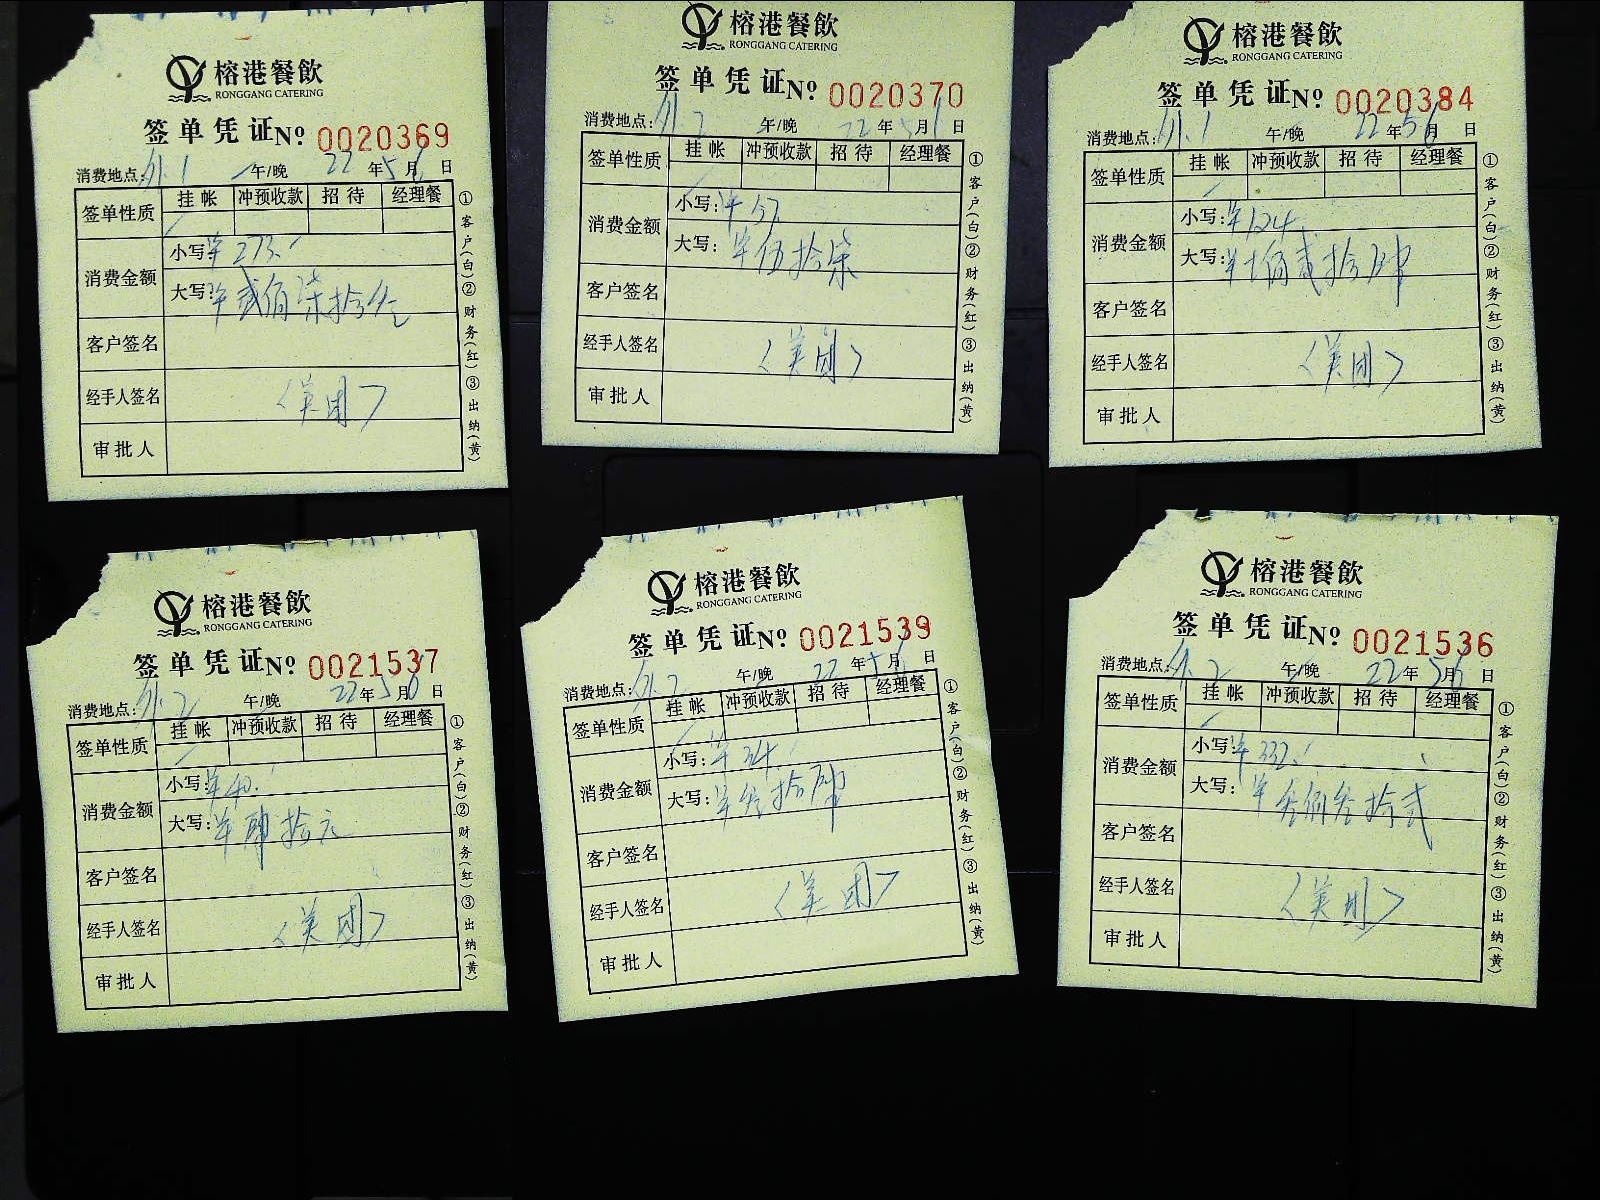 榕港餐飲
RONGGANG CATERING
签单凭证 No 0020369
消费地点: 外.1 午/晚 22年5月6日
签单性质 挂帐 冲预收款 招待 经理餐
消费金额 小写: ¥273.
大写: ¥贰佰柒拾叁
客户签名
经手人签名 〈美团〉
审批人
①客户(白)②财务(红)③出纳(黄)
榕港餐飲
RONGGANG CATERING
签单凭证 No 0020370
消费地点: 外.2 午/晚 22年5月6日
签单性质 挂帐 冲预收款 招待 经理餐
消费金额 小写: ¥57
大写: ¥伍拾柒
客户签名
经手人签名 〈美团〉
审批人
①客户(白)②财务(红)③出纳(黄)
榕港餐飲
RONGGANG CATERING
签单凭证 No 0020384
消费地点: 外.1 午/晚 22年5月6日
签单性质 挂帐 冲预收款 招待 经理餐
消费金额 小写: ¥124
大写: ¥壹佰贰拾肆
客户签名
经手人签名 〈美团〉
审批人
①客户(白)②财务(红)③出纳(黄)
榕港餐飲
RONGGANG CATERING
签单凭证 No 0021537
消费地点: 外.2 午/晚 22年5月6日
签单性质 挂帐 冲预收款 招待 经理餐
消费金额 小写: ¥40.
大写: ¥肆拾元
客户签名
经手人签名 〈美团〉
审批人
①客户(白)②财务(红)③出纳(黄)
榕港餐飲
RONGGANG CATERING
签单凭证 No 0021539
消费地点: 外.2 午/晚 22年5月6日
签单性质 挂帐 冲预收款 招待 经理餐
消费金额 小写: ¥34.
大写: ¥叁拾肆
客户签名
经手人签名 〈美团〉
审批人
①客户(白)②财务(红)③出纳(黄)
榕港餐飲
RONGGANG CATERING
签单凭证 No 0021536
消费地点: 外.2 午/晚 22年5月6日
签单性质 挂帐 冲预收款 招待 经理餐
消费金额 小写: ¥332.
大写: ¥叁佰叁拾贰
客户签名
经手人签名 〈美团〉
审批人
①客户(白)②财务(红)③出纳(黄)